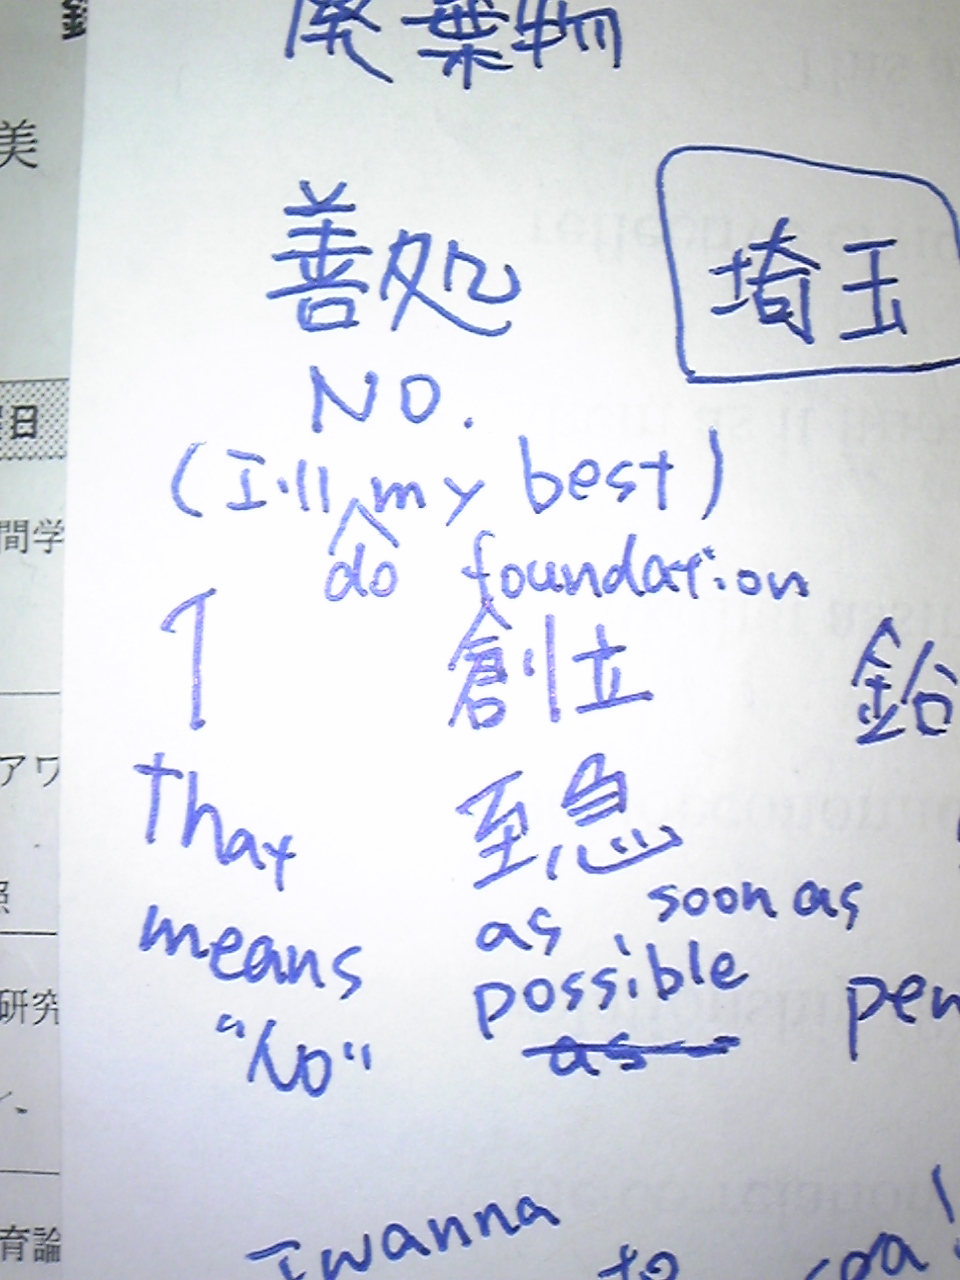 廃棄物
美
善処
埼玉
NO.
日
(I'll my best)
do foundation
間学
創立
アワ
That
至急
照
means
as soon as
possible
研究
pen
"No"
as
I wanna
to
育論